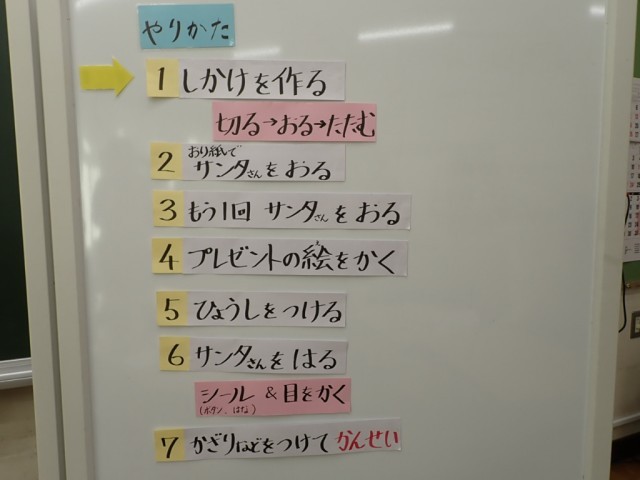 やりかた
1 しかけを作る
切る→おる→たたむ
2 おり紙で サンタさんをおる
3 もう1回 サンタさんをおる
4 プレゼントの絵をかく
5 ひょうしをつける
6 サンタさんをはる
シール & 目をかく
(ボタン、はな)
7 かざりなどをつけて かんせい